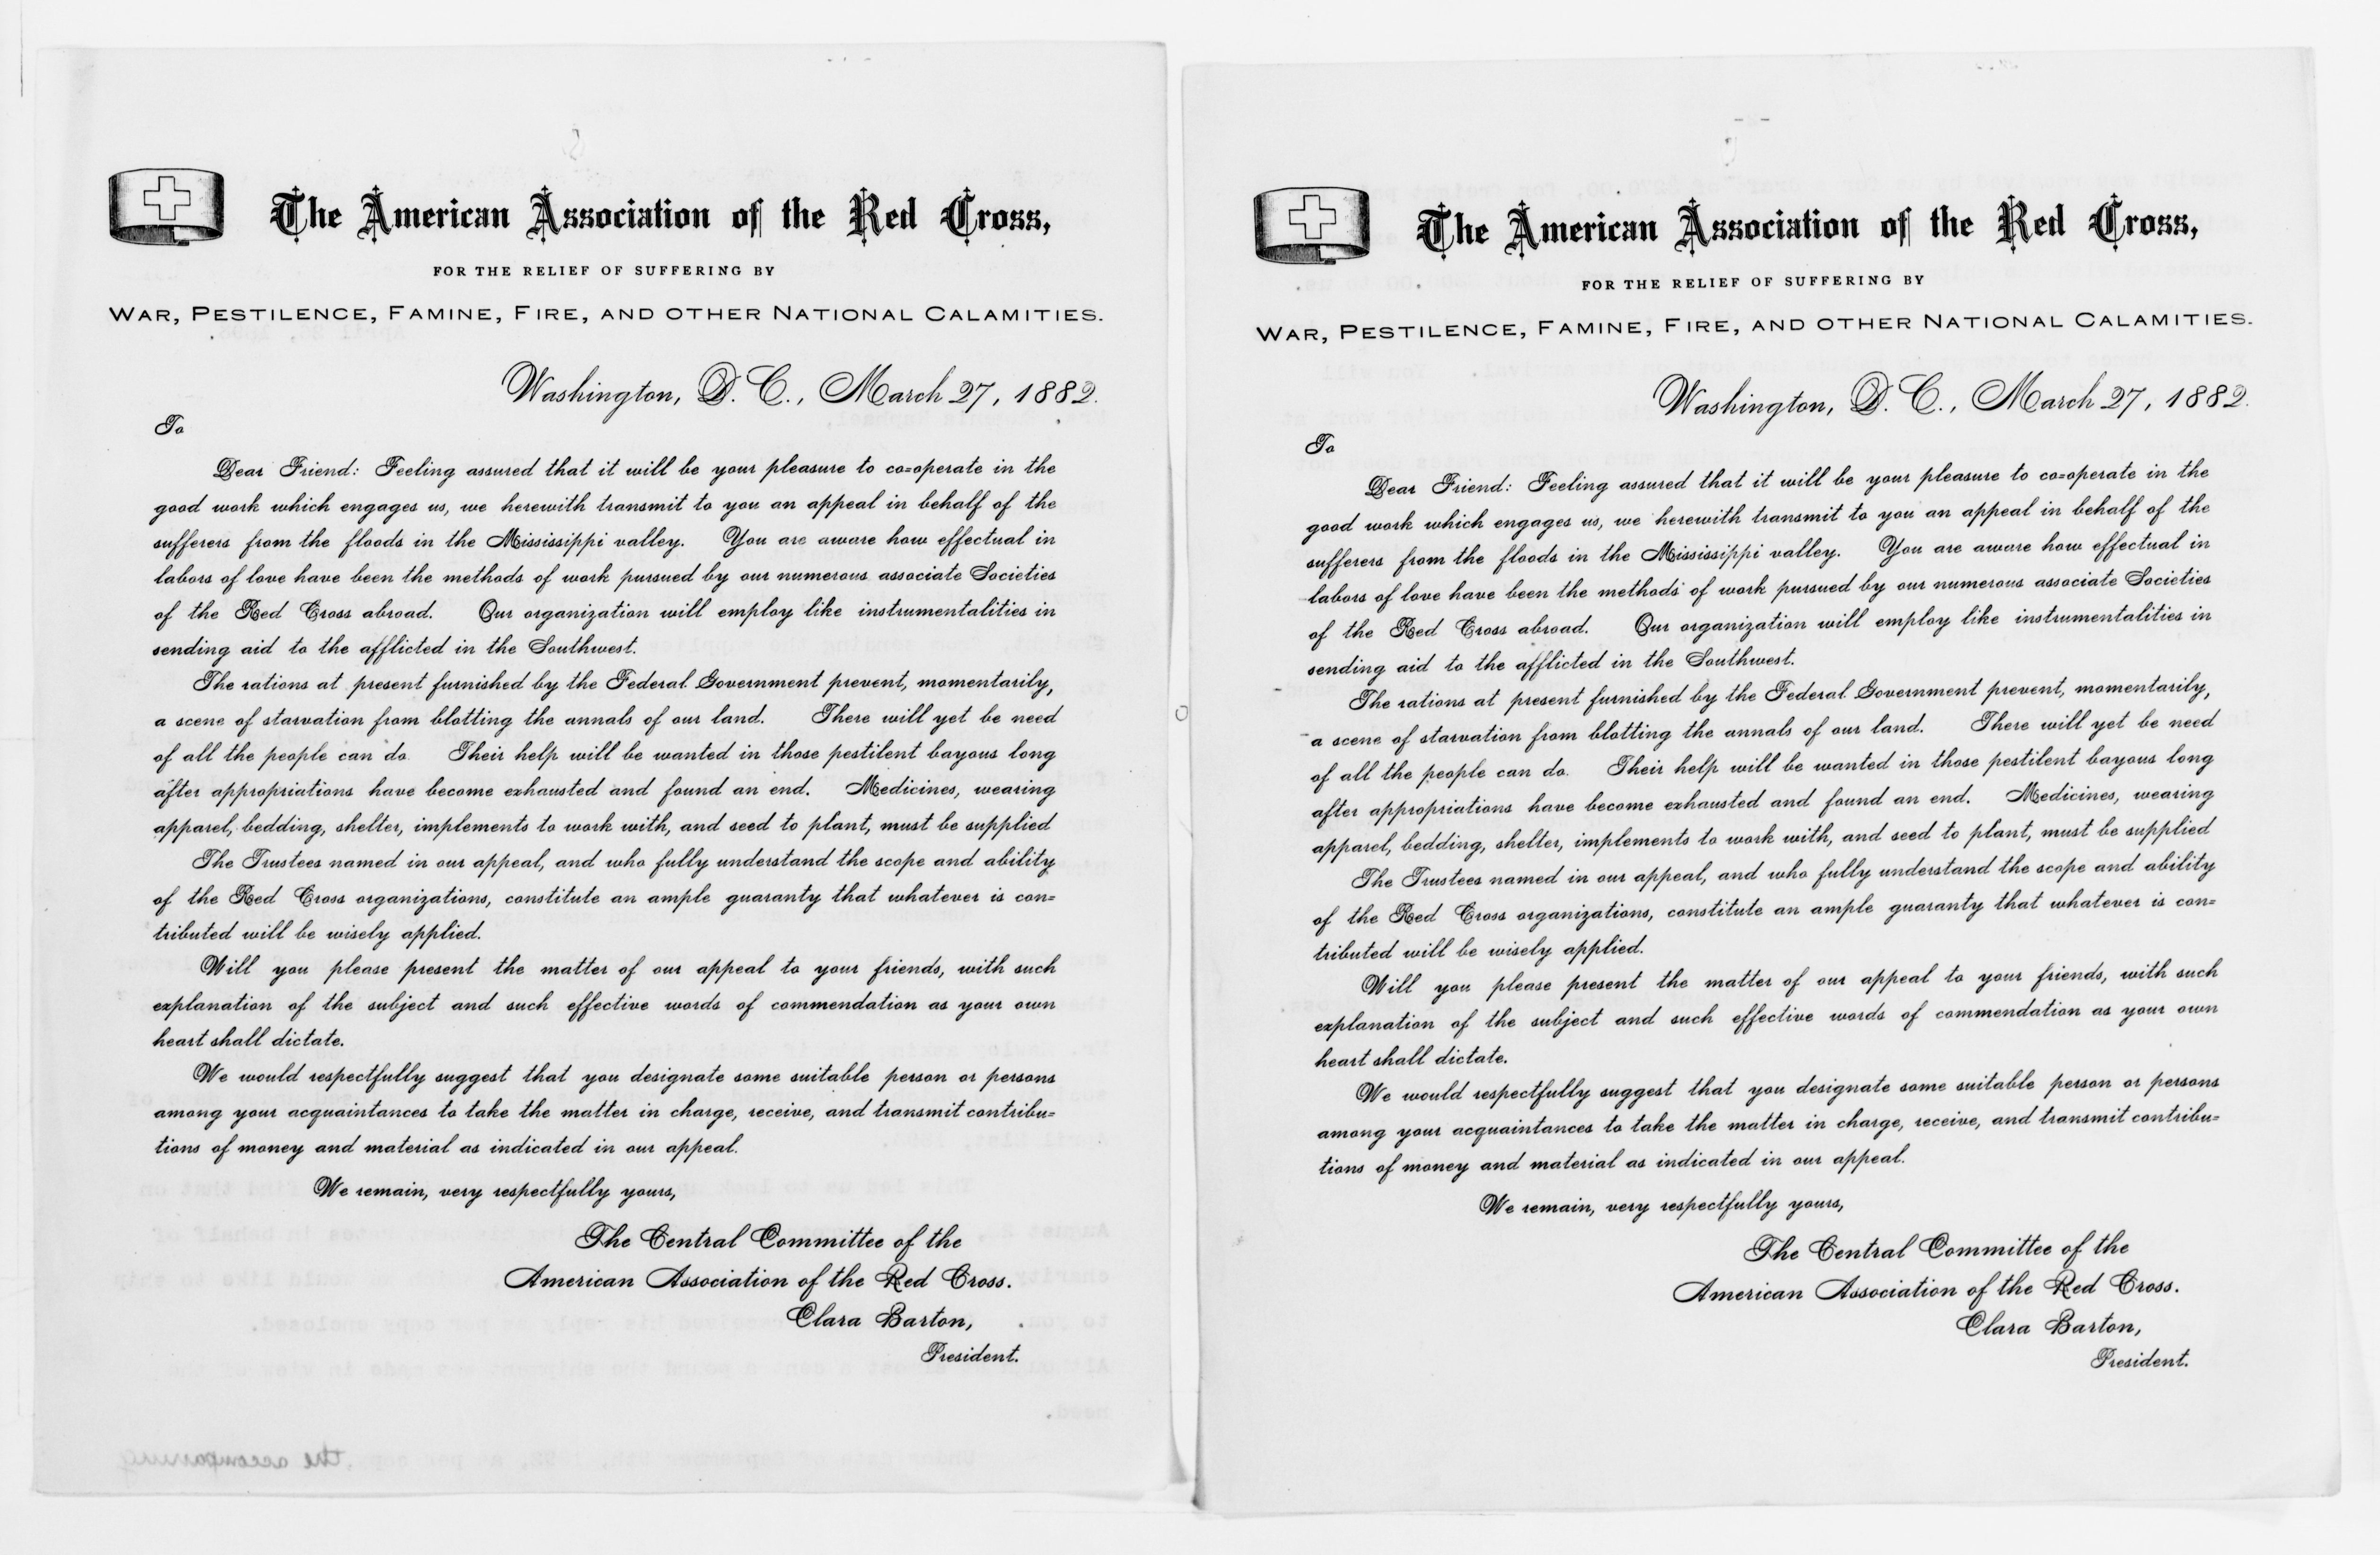 The American Association of the Red Cross,
FOR THE RELIEF OF SUFFERING BY
WAR, PESTILENCE, FAMINE, FIRE, AND OTHER NATIONAL CALAMITIES.
Washington, D. C., March 27, 1882.
To
Dear Friend: Feeling assured that it will be your pleasure to co=operate in the
good work which engages us, we herewith transmit to you an appeal in behalf of the
sufferers from the floods in the Mississippi valley. You are aware how effectual in
labors of love have been the methods of work pursued by our numerous associate Societies
of the Red Cross abroad. Our organization will employ like instrumentalities in
sending aid to the afflicted in the Southwest.
The rations at present furnished by the Federal Government prevent, momentarily,
a scene of starvation from blotting the annals of our land. There will yet be need
of all the people can do. Their help will be wanted in those pestilent bayous long
after appropriations have become exhausted and found an end. Medicines, wearing
apparel, bedding, shelter, implements to work with, and seed to plant, must be supplied
The Trustees named in our appeal, and who fully understand the scope and ability
of the Red Cross organizations, constitute an ample guaranty that whatever is con=
tributed will be wisely applied.
Will you please present the matter of our appeal to your friends, with such
explanation of the subject and such effective words of commendation as your own
heart shall dictate.
We would respectfully suggest that you designate some suitable person or persons
among your acquaintances to take the matter in charge, receive, and transmit contribu=
tions of money and material as indicated in our appeal.
We remain, very respectfully yours,
The Central Committee of the
American Association of the Red Cross.
Clara Barton,
President.
The American Association of the Red Cross,
FOR THE RELIEF OF SUFFERING BY
WAR, PESTILENCE, FAMINE, FIRE, AND OTHER NATIONAL CALAMITIES.
Washington, D. C., March 27, 1882.
To
Dear Friend: Feeling assured that it will be your pleasure to co=operate in the
good work which engages us, we herewith transmit to you an appeal in behalf of the
sufferers from the floods in the Mississippi valley. You are aware how effectual in
labors of love have been the methods of work pursued by our numerous associate Societies
of the Red Cross abroad. Our organization will employ like instrumentalities in
sending aid to the afflicted in the Southwest.
The rations at present furnished by the Federal Government prevent, momentarily,
a scene of starvation from blotting the annals of our land. There will yet be need
of all the people can do. Their help will be wanted in those pestilent bayous long
after appropriations have become exhausted and found an end. Medicines, wearing
apparel, bedding, shelter, implements to work with, and seed to plant, must be supplied
The Trustees named in our appeal, and who fully understand the scope and ability
of the Red Cross organizations, constitute an ample guaranty that whatever is con=
tributed will be wisely applied.
Will you please present the matter of our appeal to your friends, with such
explanation of the subject and such effective words of commendation as your own
heart shall dictate.
We would respectfully suggest that you designate some suitable person or persons
among your acquaintances to take the matter in charge, receive, and transmit contribu=
tions of money and material as indicated in our appeal.
We remain, very respectfully yours,
The Central Committee of the
American Association of the Red Cross.
Clara Barton,
President.